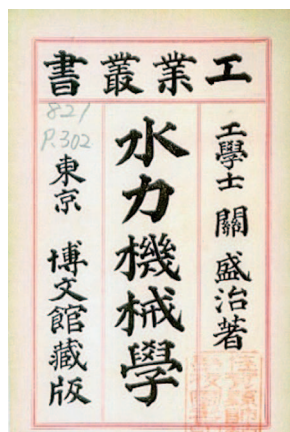 工業叢書
工學士 關盛治著
水力機械學
821
P.302
東京 博文館藏版